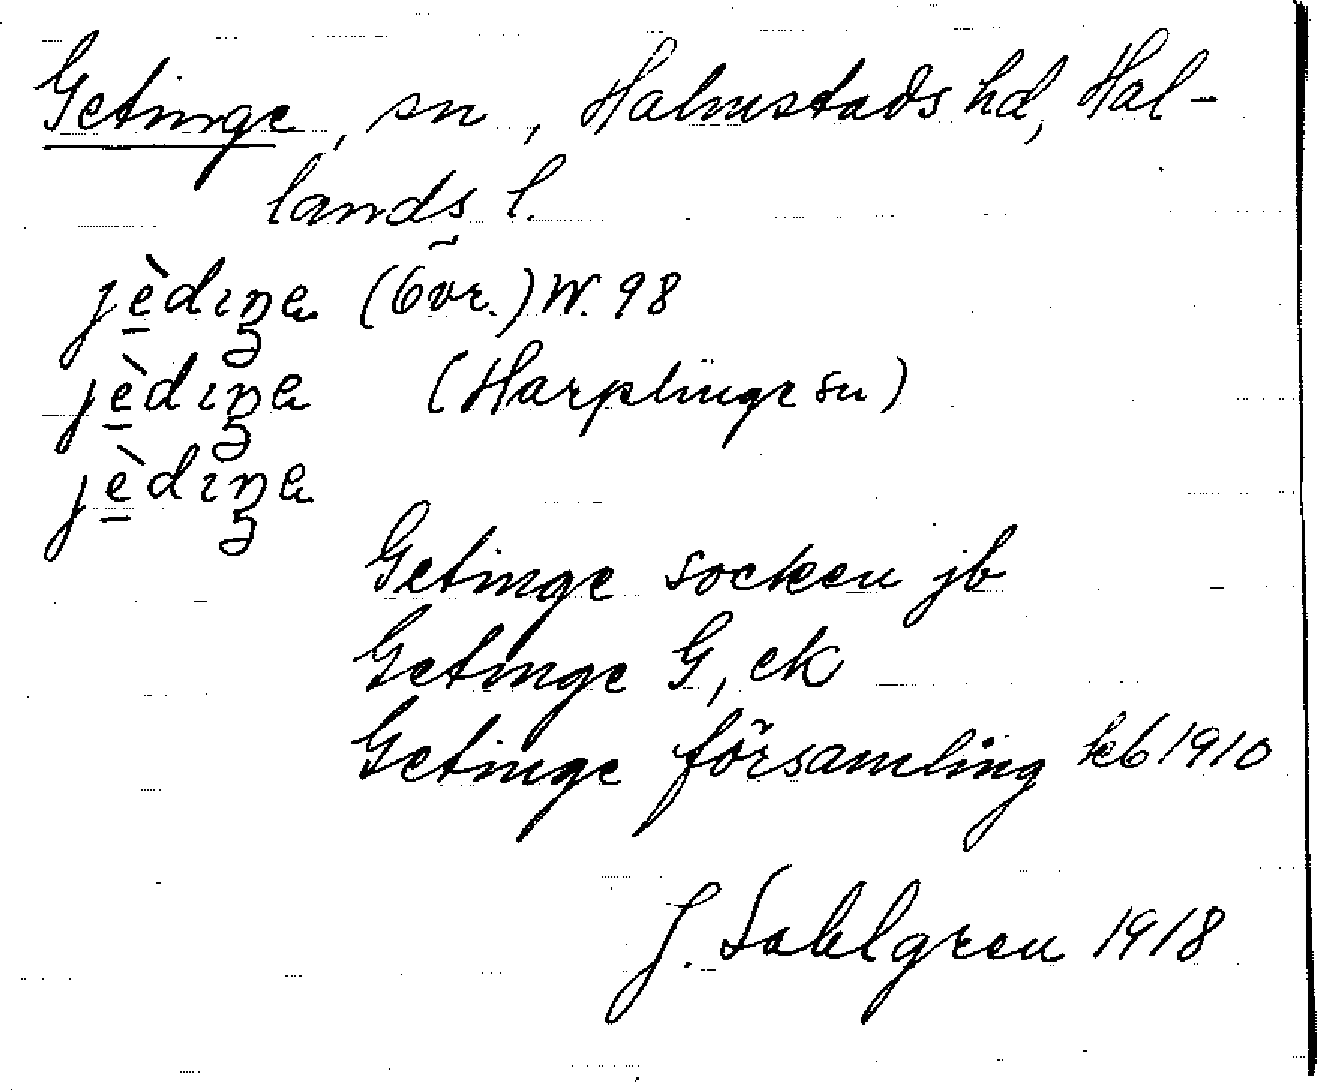 Getinge, sn, Halmstads hd, Hal-
lands l.
jè̱dıŋa (Övr.) W. 98
jè̱dıŋa (Harplinge sn)
jè̱dıŋa
Getinge socken jb
Getinge G, ek
Getinge församling kb 1910
J. Sahlgren 1918